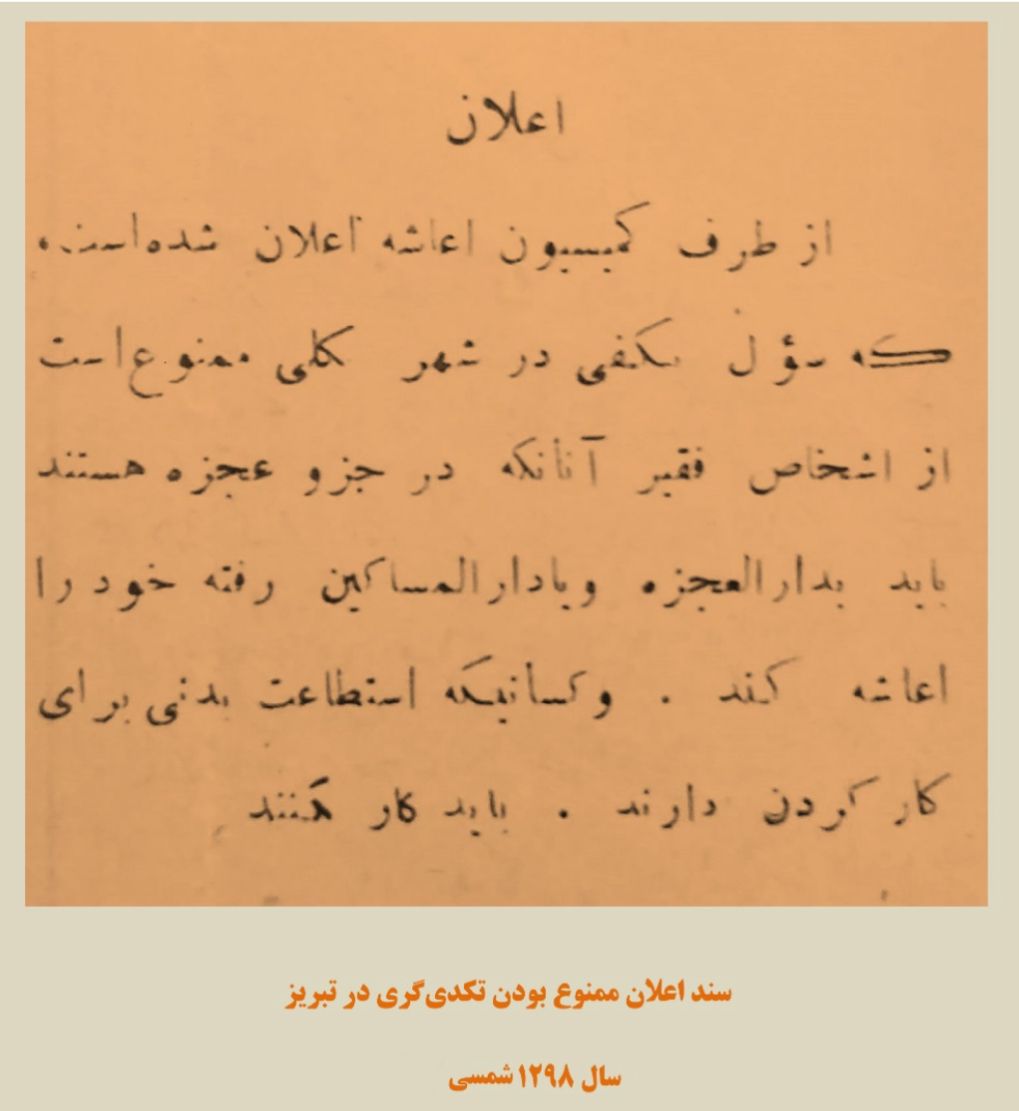 اعلان
از طرف کمیسیون اعاشه اعلان شده‌است
که سؤل بکفی در شهر کلی ممنوع‌است
از اشخاص فقیر آنانکه در جزو عجزه هستند
باید بدارالعجزه ویادارالمساکین رفته خود را
اعاشه کنند . وکسانیکه استطاعت بدنی برای
کار کردن دارند . باید کار کنند
سند اعلان ممنوع بودن تکدی‌گری در تبریز
سال ۱۲۹۸ شمسی